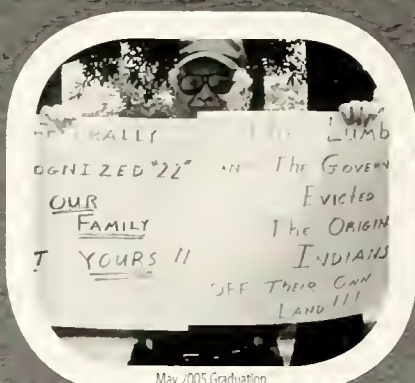 ERALLY
OGNIZED "22"
OUR
FAMILY
T YOURS !!
LUMB
The GOVERN
Evicted
The ORIGIN
INDIANS
OFF THEIR OWN
LAND!!!
May 2005 Graduation